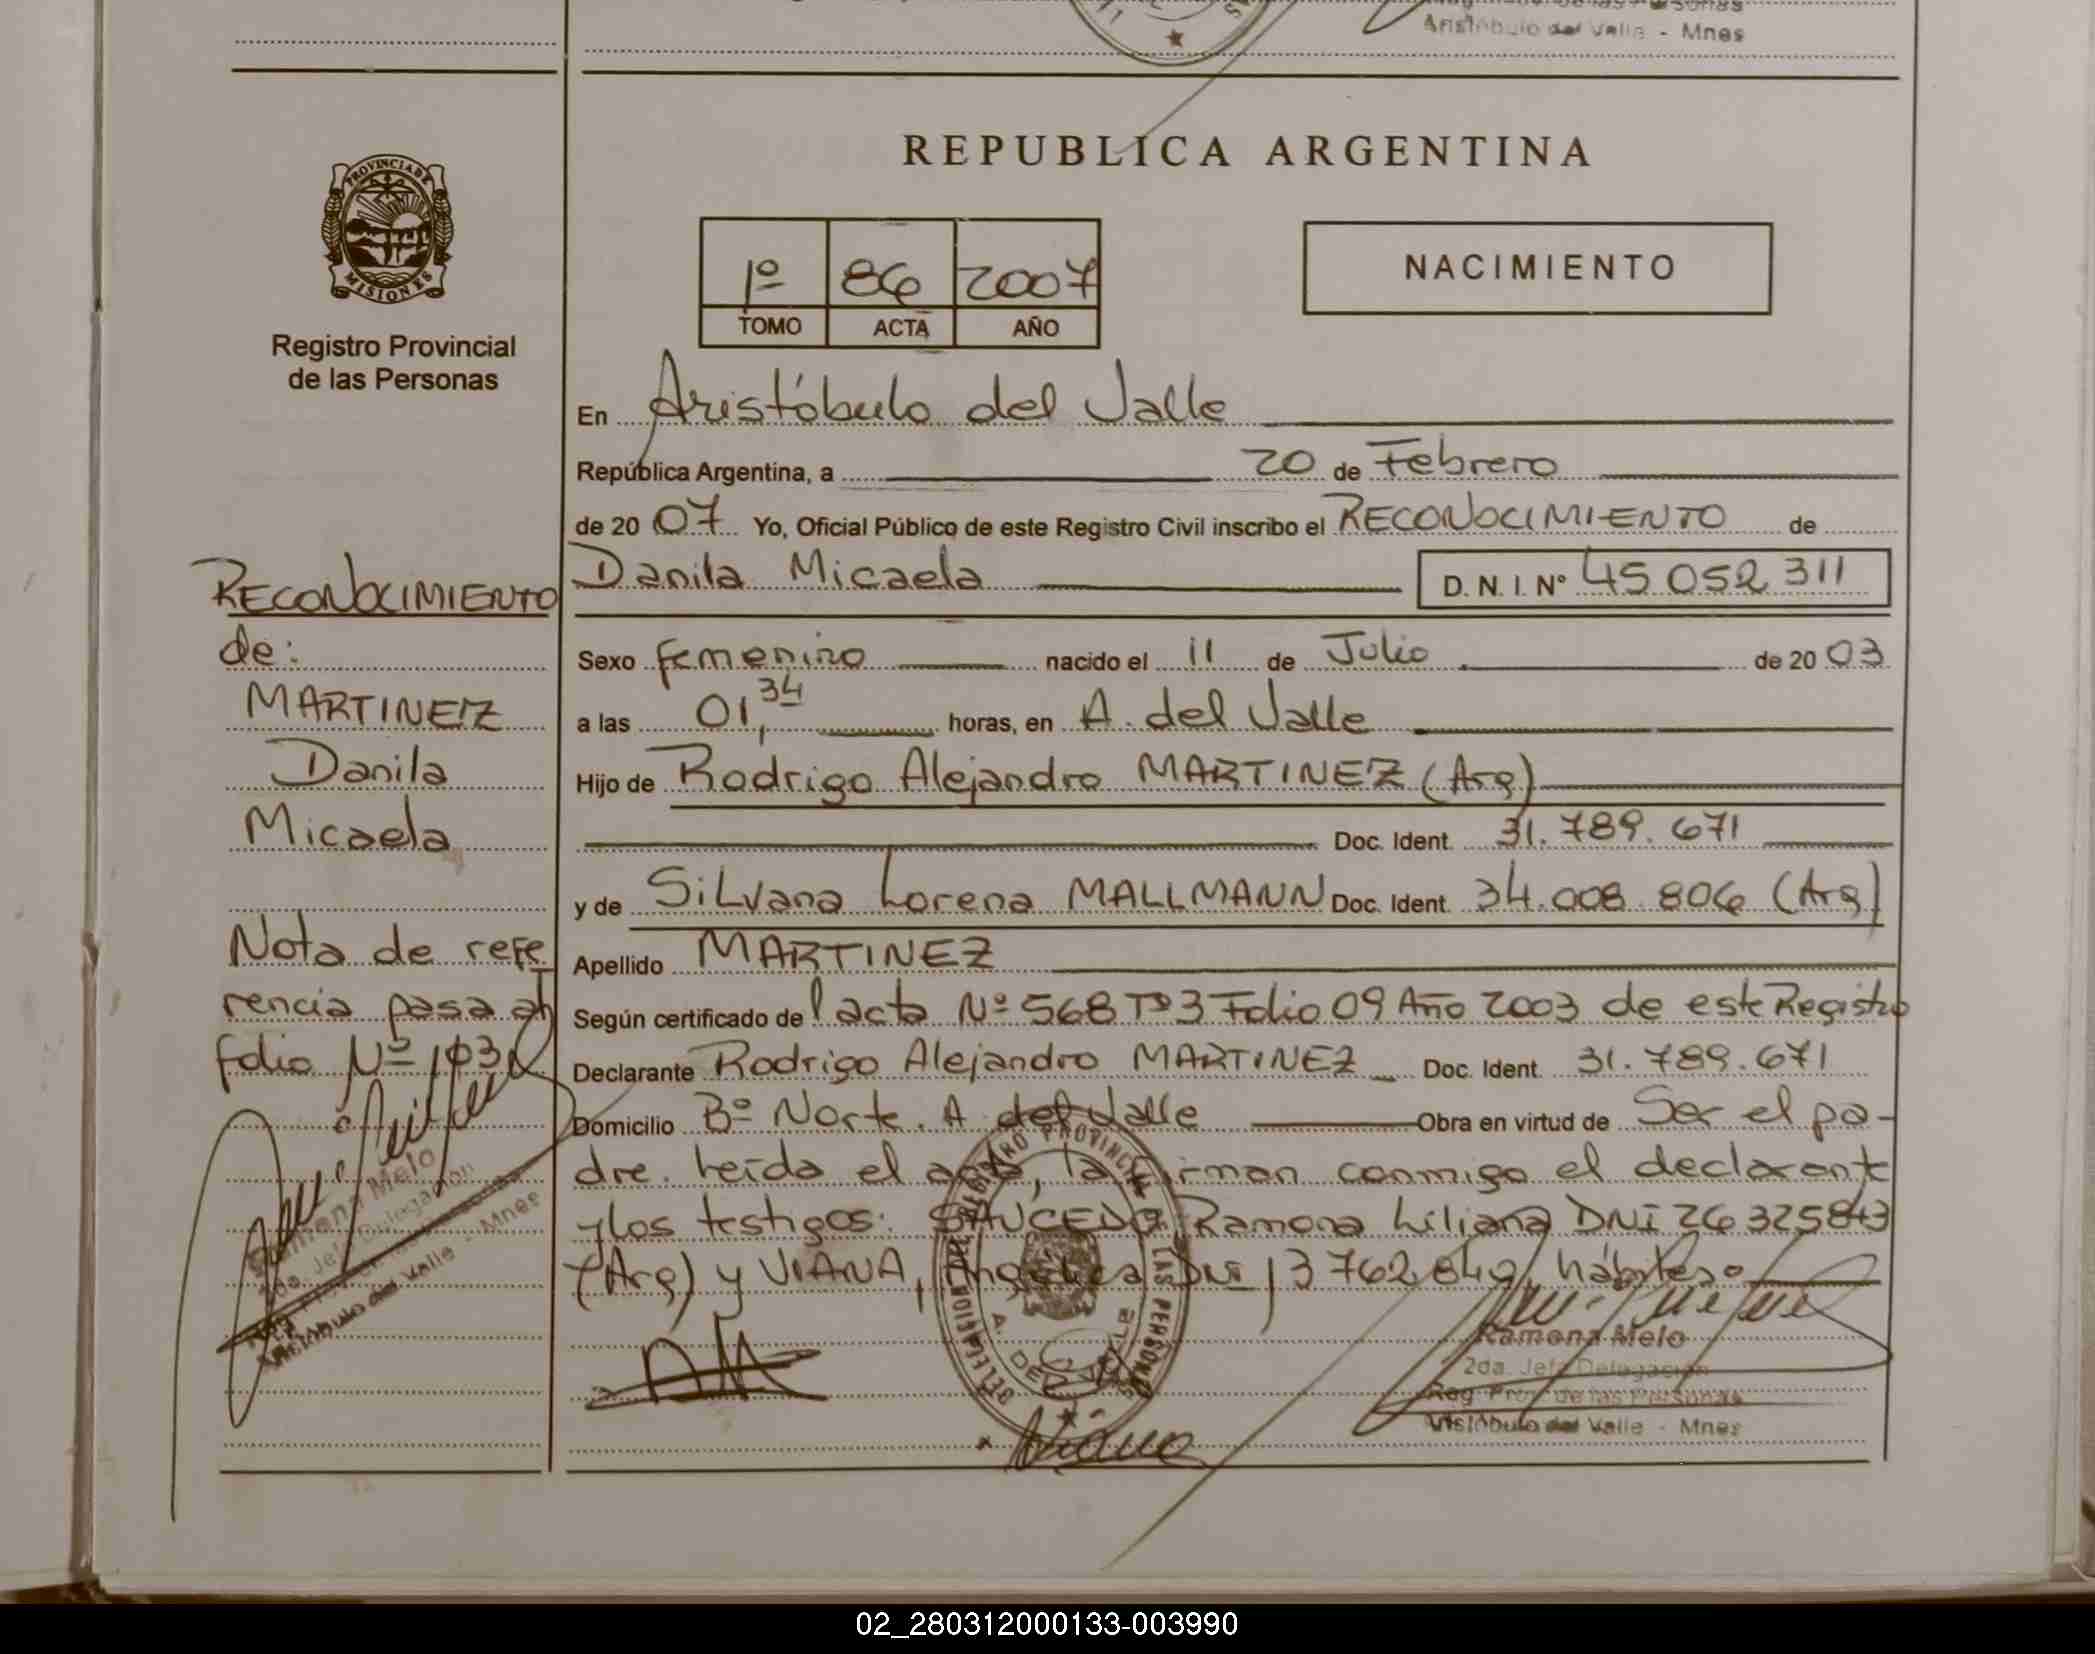 Aristóbulo del Valle - Mnes
PROVINCIA DE
MISIONES
Registro Provincial
de las Personas
REPUBLICA ARGENTINA
1º 86 2007
TOMO ACTA AÑO
NACIMIENTO
En Aristóbulo del Valle
República Argentina, a 20 de Febrero
de 2007 Yo, Oficial Público de este Registro Civil inscribo el RECONOCIMIENTO de
Danila Micaela D. N. I. Nº 45.052.311
Sexo femenino nacido el 11 de Julio de 2003
a las 01,34 horas, en A. del Valle
Hijo de Rodrigo Alejandro MARTINEZ (Arg)
Doc. Ident. 31.789.671
y de Silvana Lorena MALLMANN Doc. Ident. 34.008.806 (Arg)
Apellido MARTINEZ
Según certificado de l acta Nº 568 Tº 3 Folio 09 Año 2003 de este Registro
Declarante Rodrigo Alejandro MARTINEZ Doc. Ident. 31.789.671
Domicilio Bº Norte. A. del Valle Obra en virtud de Ser el pa-
dre. Leída el acta, la firman conmigo el declarante
y los testigos: SAUCEDO Ramona Liliana DNI 26325843
(Arg) y VIANA, Angélica DNI 13762849, hábiles.
RECONOCIMIENTO
de:
MARTINEZ
Danila
Micaela
Nota de refe
rencia pasa al
folio Nº 103
Ramona Melo
2da. Jefa Delegación
Aristóbulo del Valle - Mnes
DELEGACION DEL REGISTRO PROVINCIAL DE LAS PERSONAS
A. DEL VALLE
Viana
Ramona Melo
2da. Jefa Delegación
Reg. Prov. de las Personas
Aristóbulo del Valle - Mnes
02_280312000133-003990